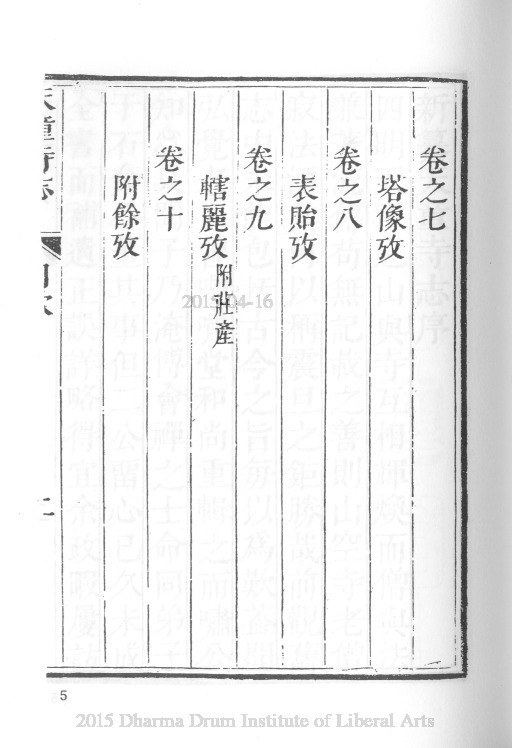 卷之七
塔像攷
卷之八
表貽攷
卷之九
轄麗攷附莊產
卷之十
附餘攷
天童寺志
目次
二
5
2015-04-16
2015 Dharma Drum Institute of Liberal Arts